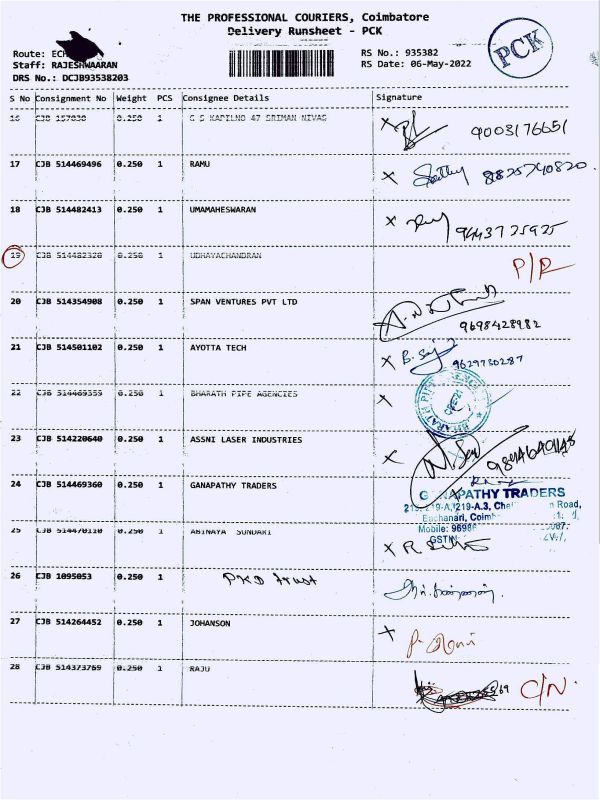 THE PROFESSIONAL COURIERS, Coimbatore
Delivery Runsheet - PCK
PCK
Route:
Staff: RAJESHWAARAN
DRS No.: DCJB93538203
RS No.: 935382
RS Date: 06-May-2022
S No Consignment No Weight PCS Consignee Details Signature
16 CJB 157030 0.250 1 G S KAPILNO 47 SRIMAN NIVAS 9003176651
17 CJB 514469496 0.250 1 RAMU 8825740820
18 CJB 514482413 0.250 1 UMAMAHESWARAN 9443725925
19 CJB 514482320 0.250 1 UDHAYACHANDRAN P/R
20 CJB 514354908 0.250 1 SPAN VENTURES PVT LTD 9698428982
21 CJB 514501102 0.250 1 AYOTTA TECH 9629730287
22 CJB 514469359 0.250 1 BHARATH PIPE AGENCIES
23 CJB 514220640 0.250 1 ASSNI LASER INDUSTRIES
24 CJB 514469360 0.250 1 GANAPATHY TRADERS
GANAPATHY TRADERS
Road,
Eachanari,
Mobile:
GSTIN
25 CJB 514470110 0.250 1 ABINAYA SUNDARI
26 CJB 1095053 0.250 1 PKD trust
27 CJB 514264452 0.250 1 JOHANSON
28 CJB 514373769 0.250 1 RAJU C/N.